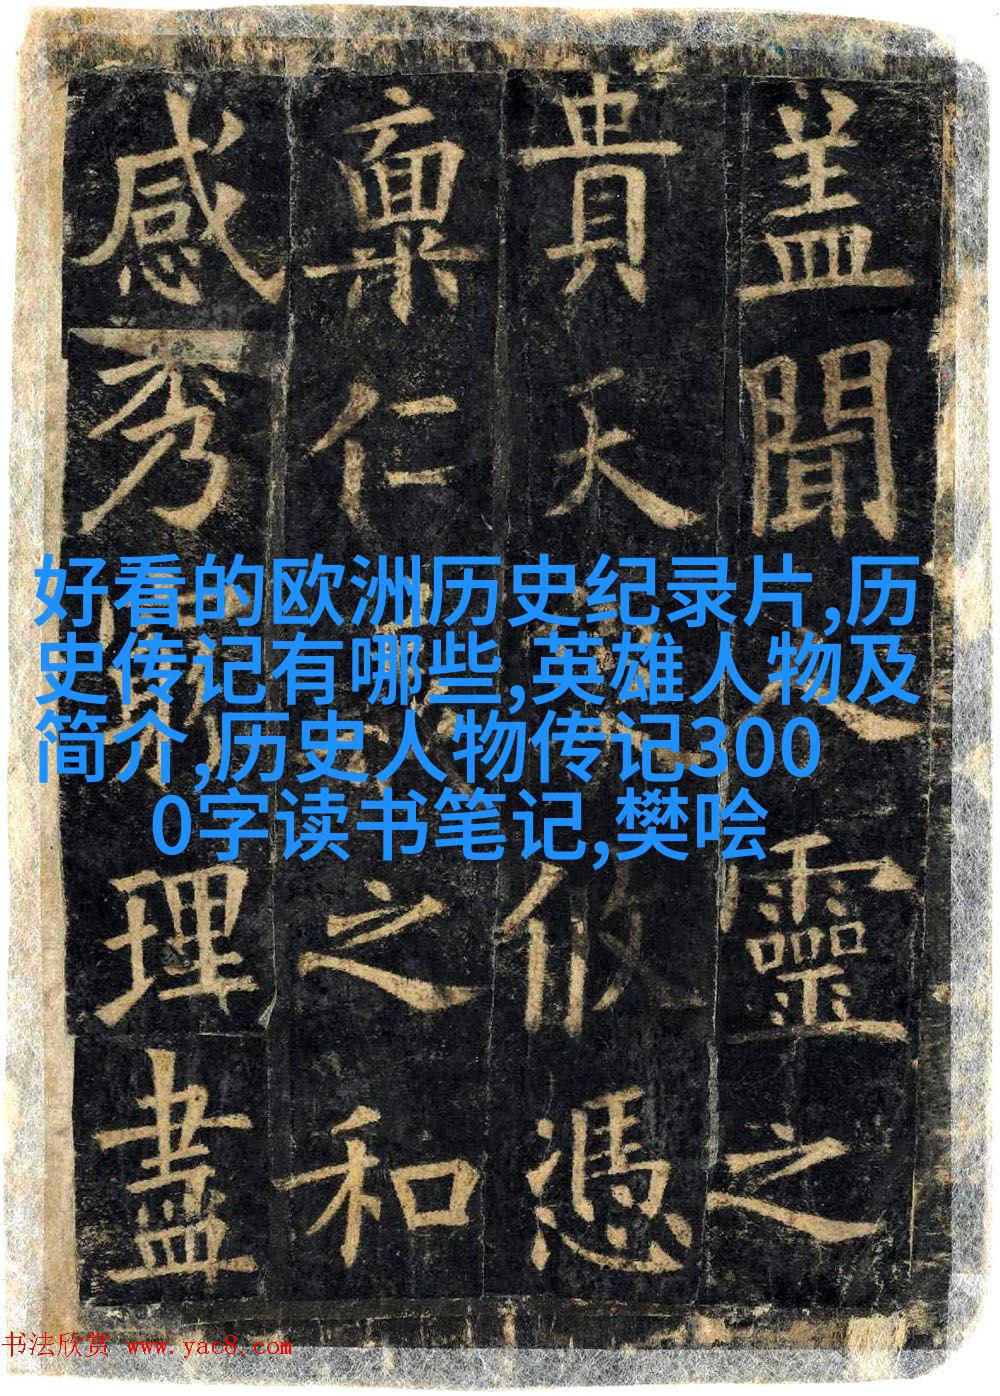 盖聞靈之
貴天攸憑
稟仁之和
感秀理盡
好看的欧洲历史纪录片,历
史传记有哪些,英雄人物及
简介,历史人物传记300
0字读书笔记,樊哙
书法欣赏 www.yac8.com